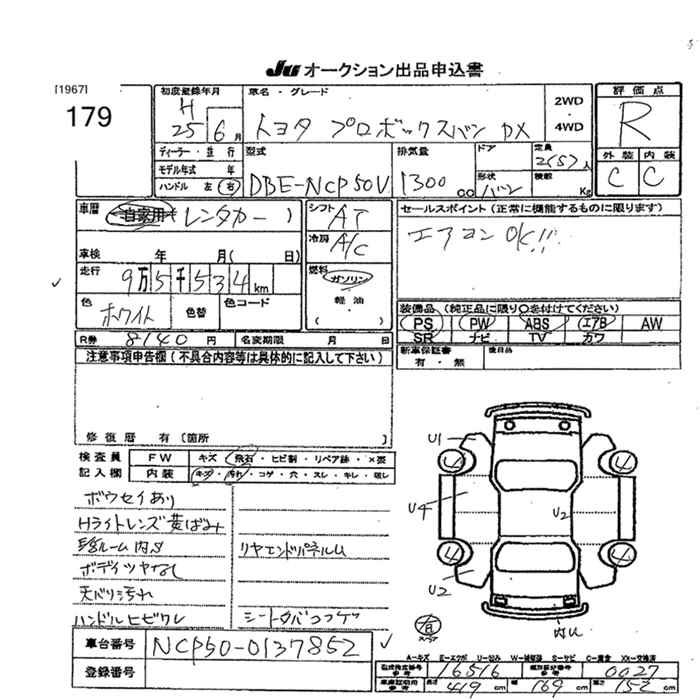 Ju オークション出品申込書
[1967]
179
初度登録年月
H
25 6 月
車名・グレード
トヨタ プロボックスバン DX
2WD
・
4WD
評価点
R
外装 内装
C C
ディーラー・並行
モデル年式 年
ハンドル 左 右
型式
DBE-NCP50V
排気量
1300 CC
ドア
形状
バン
定員
2(5)人
積載
Kg
車歴
自家用 レンタカー )
車検 年 月( 日)
走行
9万5千534 km
色
ホワイト
色替
色コード
シフト
AT
冷房
A/C
燃料
ガソリン
軽油
( )
セールスポイント (正常に機能するものに限ります)
エアコンOK!!!
装備品 (純正品に限り○を付けてください)
PS PW ABS エアB AW
SR ナビ TV カワ
新車保証書
有・無
後日品
R券 8140 円
名変期限 月 日
注意事項申告欄 (不具合内容等は具体的に記入して下さい)
修復歴 有 [箇所 ]
検査員
記入欄
FW キズ・飛石・ヒビ割・リペア跡・×要
内装 キズ・汚れ・コゲ・穴・スレ・キレ・
ボウセイあり
Hライトレンズ黄ばみ
ボディツヤなし
天バリ汚れ
ハンドルヒビワレ
リヤエンドパネルU
U1
U4
U2
U2
4
4
4
4
内U
有
車台番号 NCP50-0137852
登録番号
A-キズ E-エクボ U-凹み W-補修跡 S-サビ C-腐食 XX-交換済
16516
0027
419 cm
169 cm
152 cm